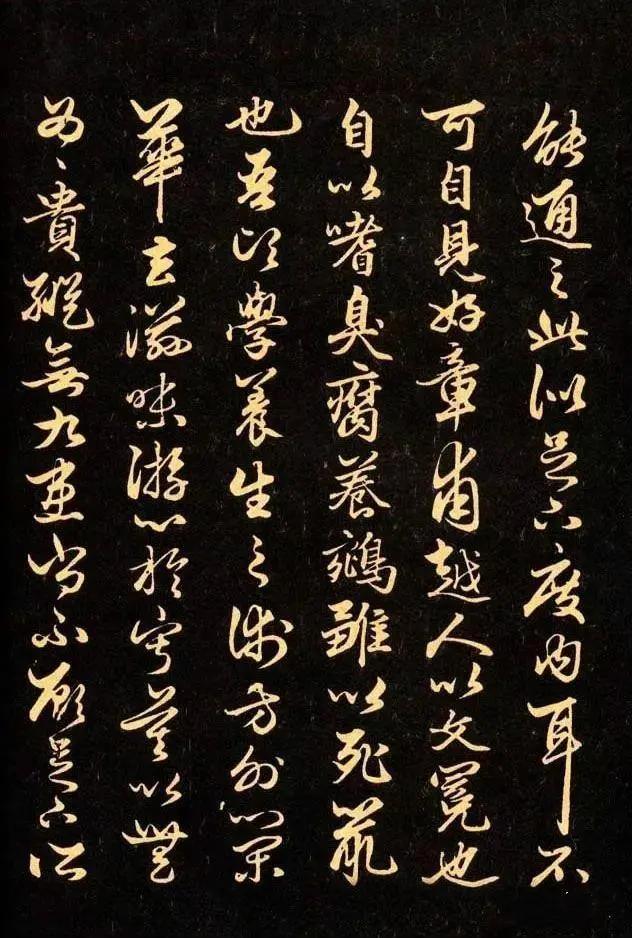 能通之此似足下度內耳不
可自見好章甫越人以文冕也
自以嗜臭腐養鵷雛以死鼠
也吾頃學養生之術方外榮
華去滋味游心於寂莫以無
為〻貴縱無九患尚不顧足下所